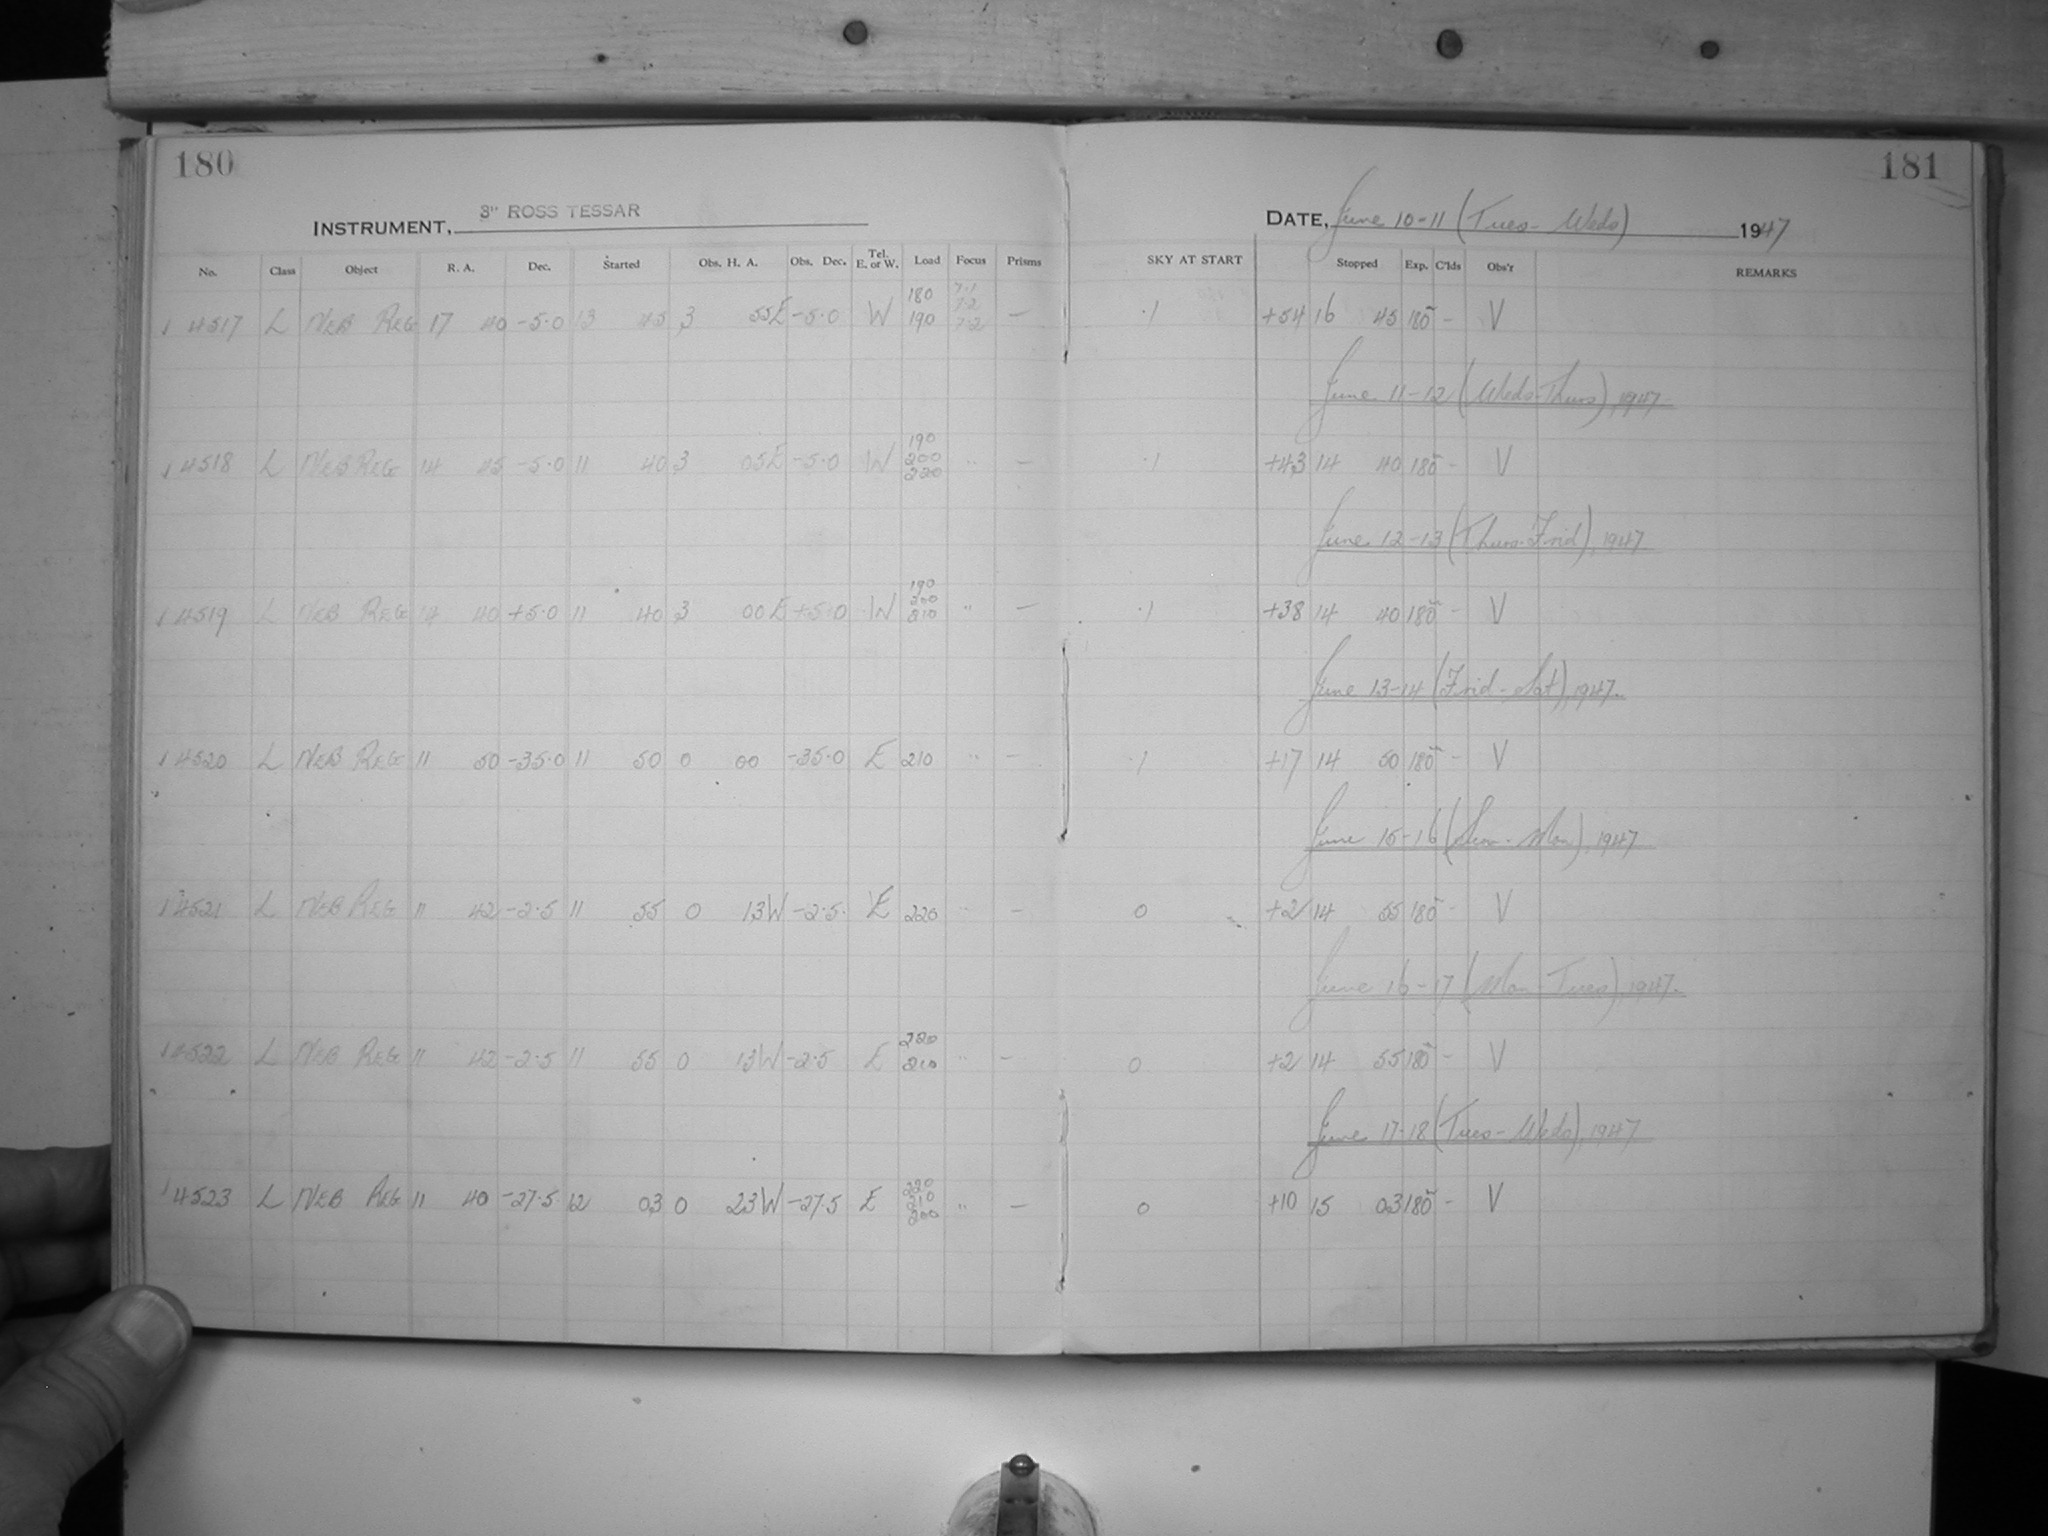 180
181
INSTRUMENT, 3" ROSS TESSAR
DATE, June 10-11 (Tues - Weds) 1947
No. Class Object R. A. Dec. Started Obs. H. A. Obs. Dec. Tel. E. or W. Load Focus Prisms SKY AT START Stopped Exp. C'lds Obs'r REMARKS
4517 L NEB REG 17 40 -5.0 13 45 3 55E -5.0 W 180 190 7.1 7.2 7.2 — .1 +54 16 45 180 - V
June 11-12 (Weds-Thurs), 1947
4518 L NEB REG 14 45 -5.0 11 40 3 05E -5.0 W 190 200 220 " — .1 +43 14 40 180 - V
June 12-13 (Thurs-Frid), 1947
4519 L NEB REG 14 40 +5.0 11 40 3 00E +5.0 W 190 200 210 " — .1 +38 14 40 180 - V
June 13-14 (Frid-Sat), 1947
4520 L NEB REG 11 50 -35.0 11 50 0 00 -35.0 E 210 " — .1 +17 14 50 180 - V
June 15-16 (Sun-Mon), 1947
4521 L NEB REG 11 42 -2.5 11 55 0 13W -2.5 E 220 - — 0 +2 14 55 180 - V
June 16-17 (Mon-Tues), 1947
4522 L NEB REG 11 42 -2.5 11 55 0 13W -2.5 E 220 210 " — 0 +2 14 55 180 - V
June 17-18 (Tues-Weds), 1947
4523 L NEB REG 11 40 -27.5 12 03 0 23W -27.5 E 220 210 200 " — 0 +10 15 03 180 - V